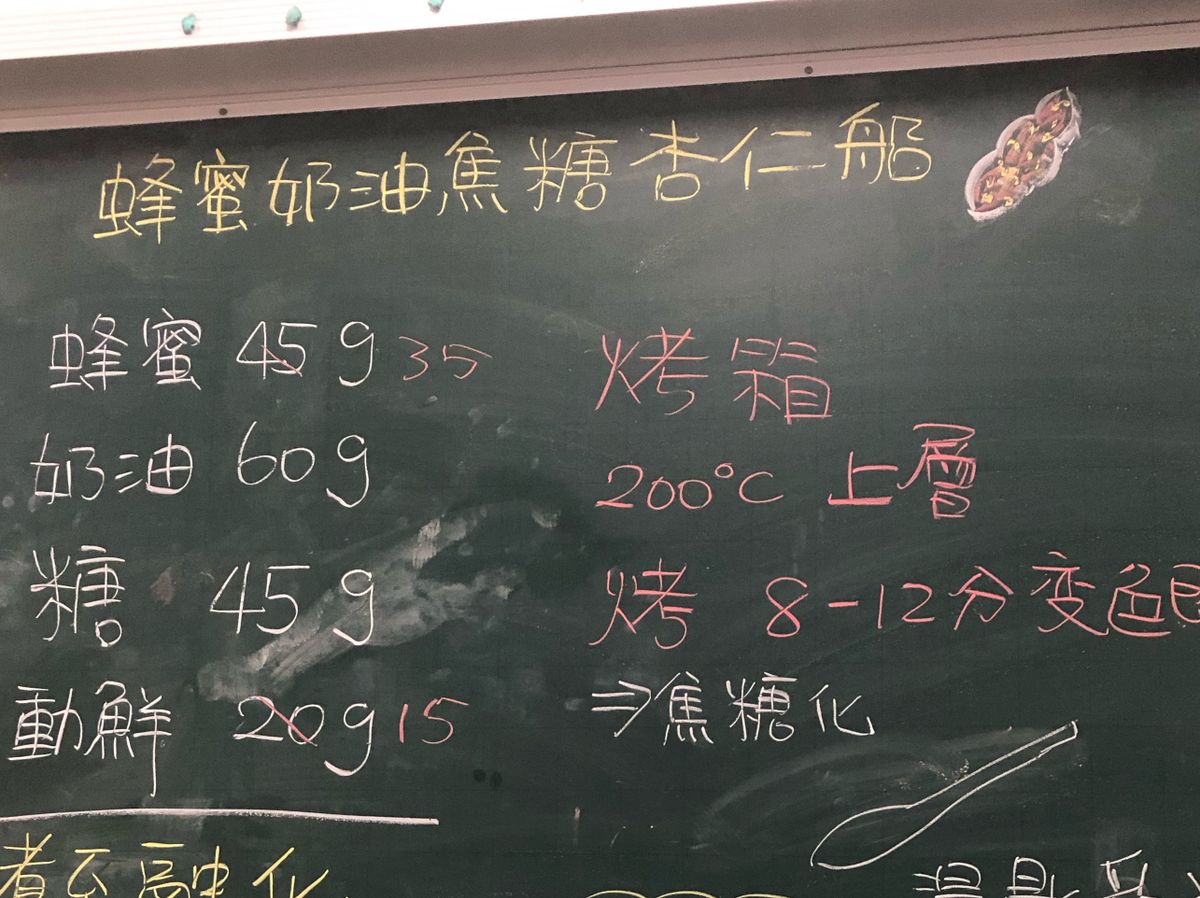 蜂蜜奶油焦糖杏仁船
蜂蜜 45g 35
奶油 60g
糖 45g
動鮮 20g 15
煮至融化
烤箱
200°C 上層
烤 8-12分变色即
⇒焦糖化
湯匙